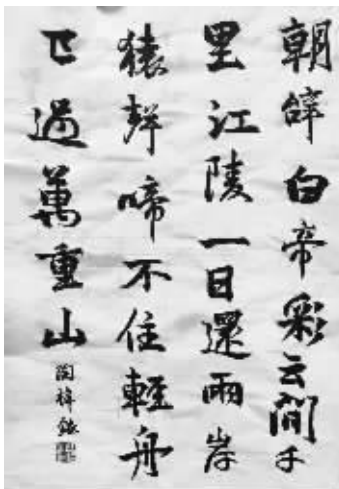 朝辞白帝彩云间千
里江陵一日還兩岸
猿聲啼不住輕舟
已過萬重山